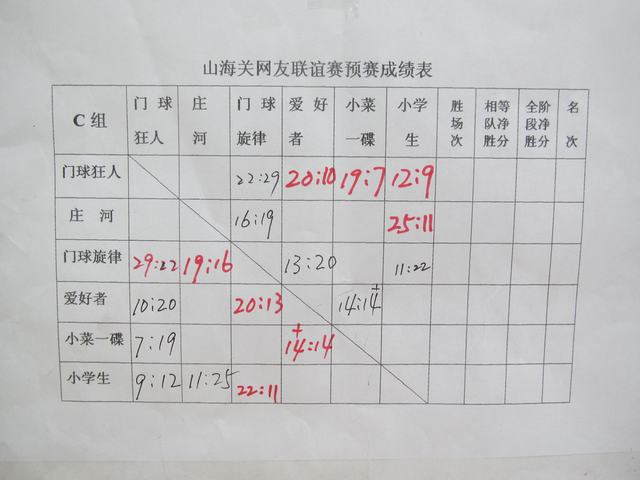 山海关网友联谊赛预赛成绩表
C组 门球狂人 庄河 门球旋律 爱好者 小菜一碟 小学生 胜场次 相等队净胜分 全阶段净胜分 名次
门球狂人 22:29 20:10 19:7 12:9
庄河 16:19 25:11
门球旋律 29:22 19:16 13:20 11:22
爱好者 10:20 20:13 14:14+
小菜一碟 7:19 +14:14
小学生 9:12 11:25 22:11